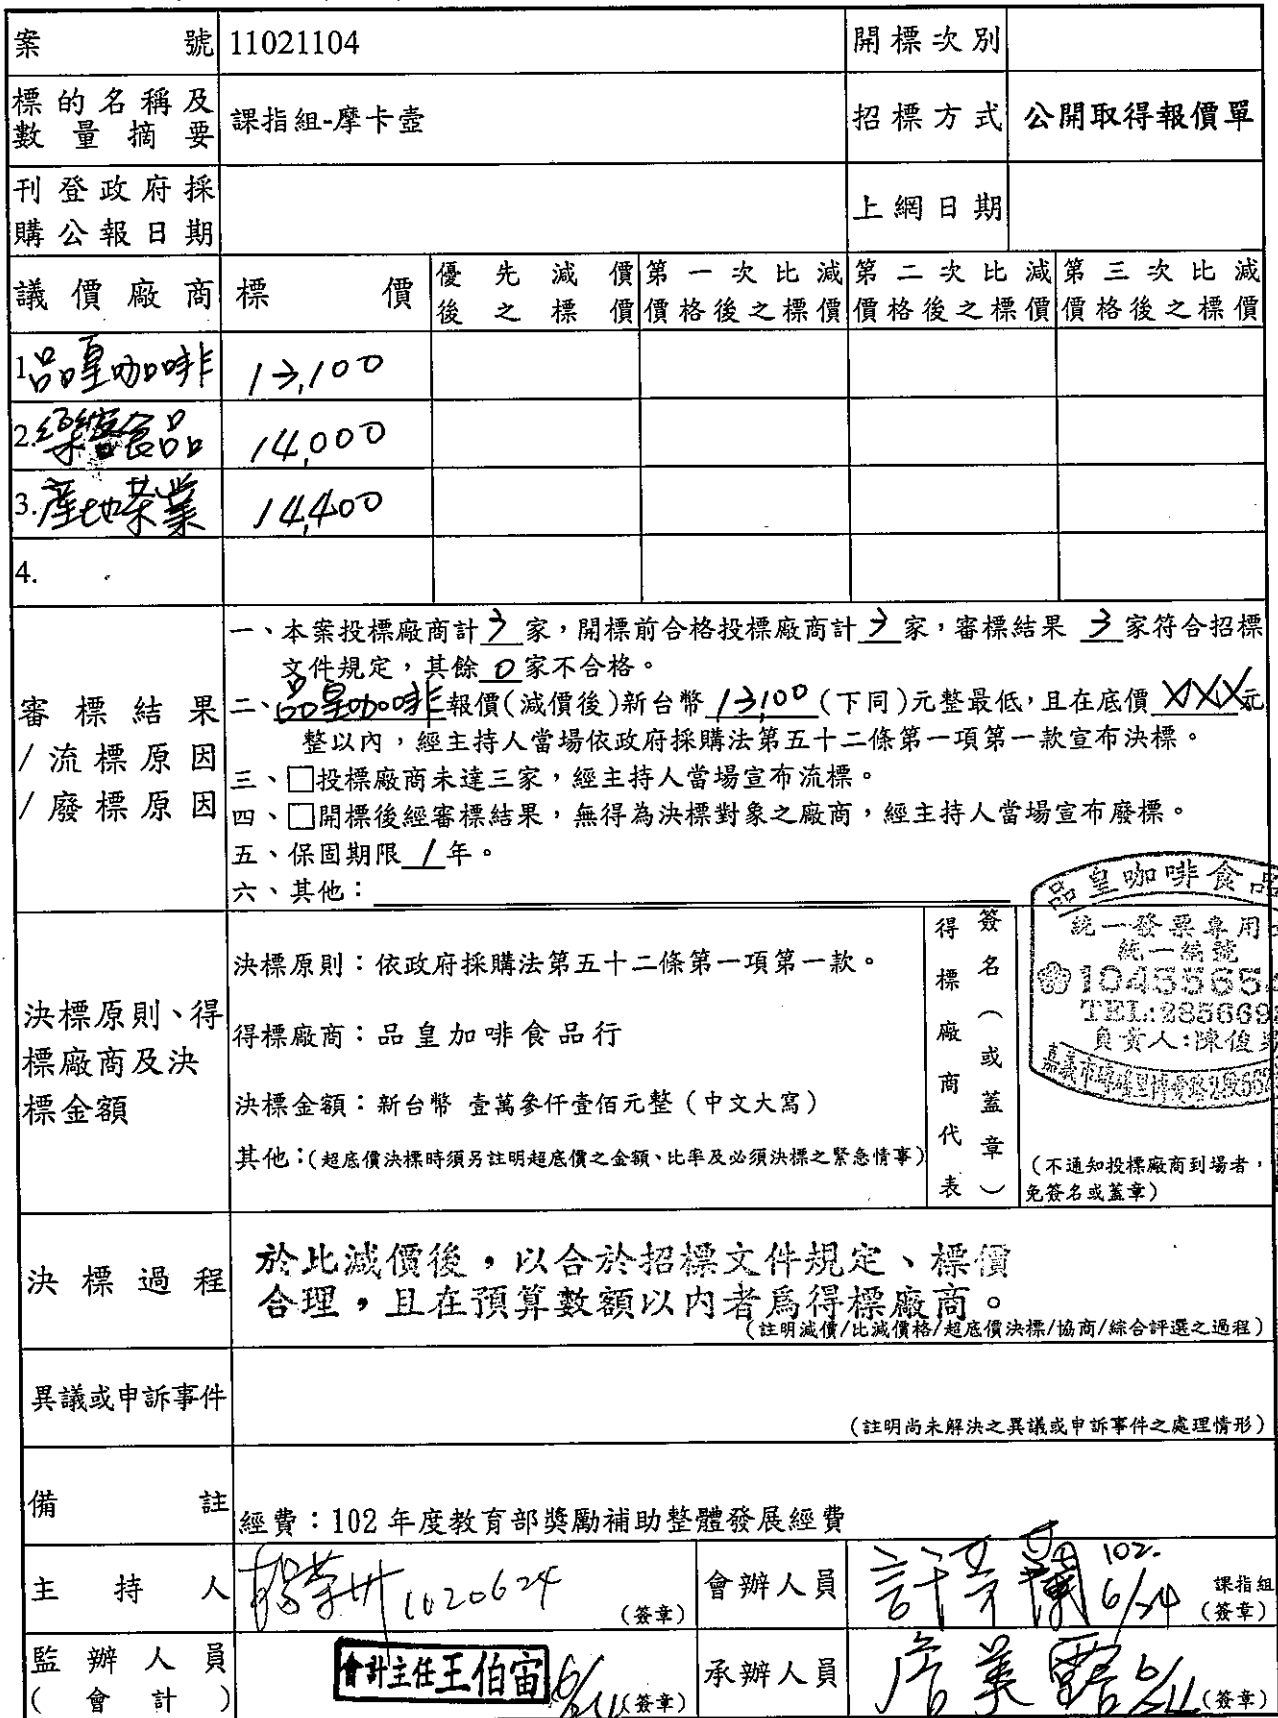 案號 11021104 開標次別
標的名稱及數量摘要 課指組-摩卡壺 招標方式 公開取得報價單
刊登政府採購公報日期 上網日期
議價廠商 標價 優先減價後之標價 第一次比減價格後之標價 第二次比減價格後之標價 第三次比減價格後之標價
1.品皇咖啡 13,100
2. 食品 14,000
3.產地茶業 14,400
4.
審標結果/流標原因/廢標原因
一、本案投標廠商計 3 家，開標前合格投標廠商計 3 家，審標結果 3 家符合招標
文件規定，其餘 0 家不合格。
二、品皇咖啡報價(減價後)新台幣 13,100 (下同)元整最低，且在底價 XXX 元
整以內，經主持人當場依政府採購法第五十二條第一項第一款宣布決標。
三、□投標廠商未達三家，經主持人當場宣布流標。
四、□開標後經審標結果，無得為決標對象之廠商，經主持人當場宣布廢標。
五、保固期限 1 年。
六、其他：
決標原則、得標廠商及決標金額
決標原則：依政府採購法第五十二條第一項第一款。
得標廠商：品皇加啡食品行
決標金額：新台幣 壹萬參仟壹佰元整（中文大寫）
其他：(超底價決標時須另註明超底價之金額、比率及必須決標之緊急情事)
得標廠商代表簽名（或蓋章）
品皇咖啡食品
統一發票專用
統一編號
1045565
TEL:285669
負責人:陳俊
嘉義市
(不通知投標廠商到場者，
免簽名或蓋章)
決標過程
於比減價後，以合於招標文件規定、標價
合理，且在預算數額以內者為得標廠商。
(註明減價/比減價格/超底價決標/協商/綜合評選之過程)
異議或申訴事件
(註明尚未解決之異議或申訴事件之處理情形)
備註 經費：102 年度教育部獎勵補助整體發展經費
主持人 1020624 (簽章) 會辦人員 102. 6/24 課指組 (簽章)
監辦人員(會計) 會計主任王伯宙 6/24 (簽章) 承辦人員 詹美 6/24 (簽章)